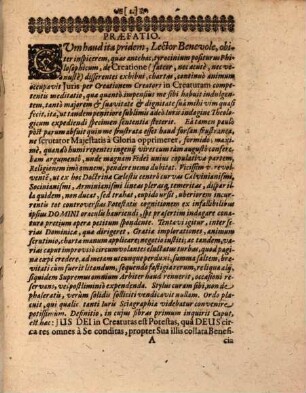 PRÆFATIO.
CUm haud ita pridem, Lector Benevole, obiter
inspicerem, quæ antehac, tyrocinium positurus Philosophicum,
de Creatione (fateor, nec acutè, nec venustè)
disserentes exhibui, chartas, continuò animum
occupavit Juris per Creationem Creatori in Creaturam
competentis meditatio, quæ quantò impensius me sibi habuit indulgentem,
tantò majorem & suavitate & dignitate suâ mihi vim quasi
fecit, ita, ut tandem penitiore sublimis adeò Juris indagine Theologicum
expediendi specimen facultatis fieret. Et tamen paulò
post parum absuit quin me frustrata esset haud
ne scrutator Majestatis à Gloria opprimerer, formidi, maximè,
quandò humi repentis ingenij vires cum tàm augusto conserebam
argumentò, unde magnam Fidei unius copulativæ partem,
Religionem imò omnem, pendere nemo dubitat. Vicissim
ut ex hac Doctrina Cœlistis centrô curvas Calvinianismi,
Socinianismi, Arminianismi lineas
quidem, non ducat, sed trahat, cupidus
tot controversias Potestatis cognitionem ex infallibilibus
ipsius DOMINI oraculis hauriendi, quæ præsertim indagare conatura
pretium opera potissimum spondent. Tentavi igitur, interserias
Dominica, qua dirigeret, Gratiæ implorationes, animum
scrutinio, charta manum applicare; negotia insuper, ac tandem, varias
caput improvisò circumvolantes eluctatus turbas, quò pagina
cœpi credere, ad metam utcunque perduxi, summa saltem, brevitati
cùm fuerit litandum, sequendo fastigia rerum, reliqua aliis,
siquidem Supremo omnium Arbiter haud renuerit, occasioni reservans,
vel postliminiò expendenda. Stylus curam sibi, non de
phaleratu, verùm solidus solliciti vendicavit nullam. Ordo placuit,
qui qualis tanti Juris Sciagraphia videbatur convenire
potissimùm. Definitio, in cujus fibras primum inquirit Caput,
est hæc: JUS DEI in Creaturas est Potestas, quâ DEUS circa
res omnes à Se conditas, propter Sua illis collata Benefi-
A cia